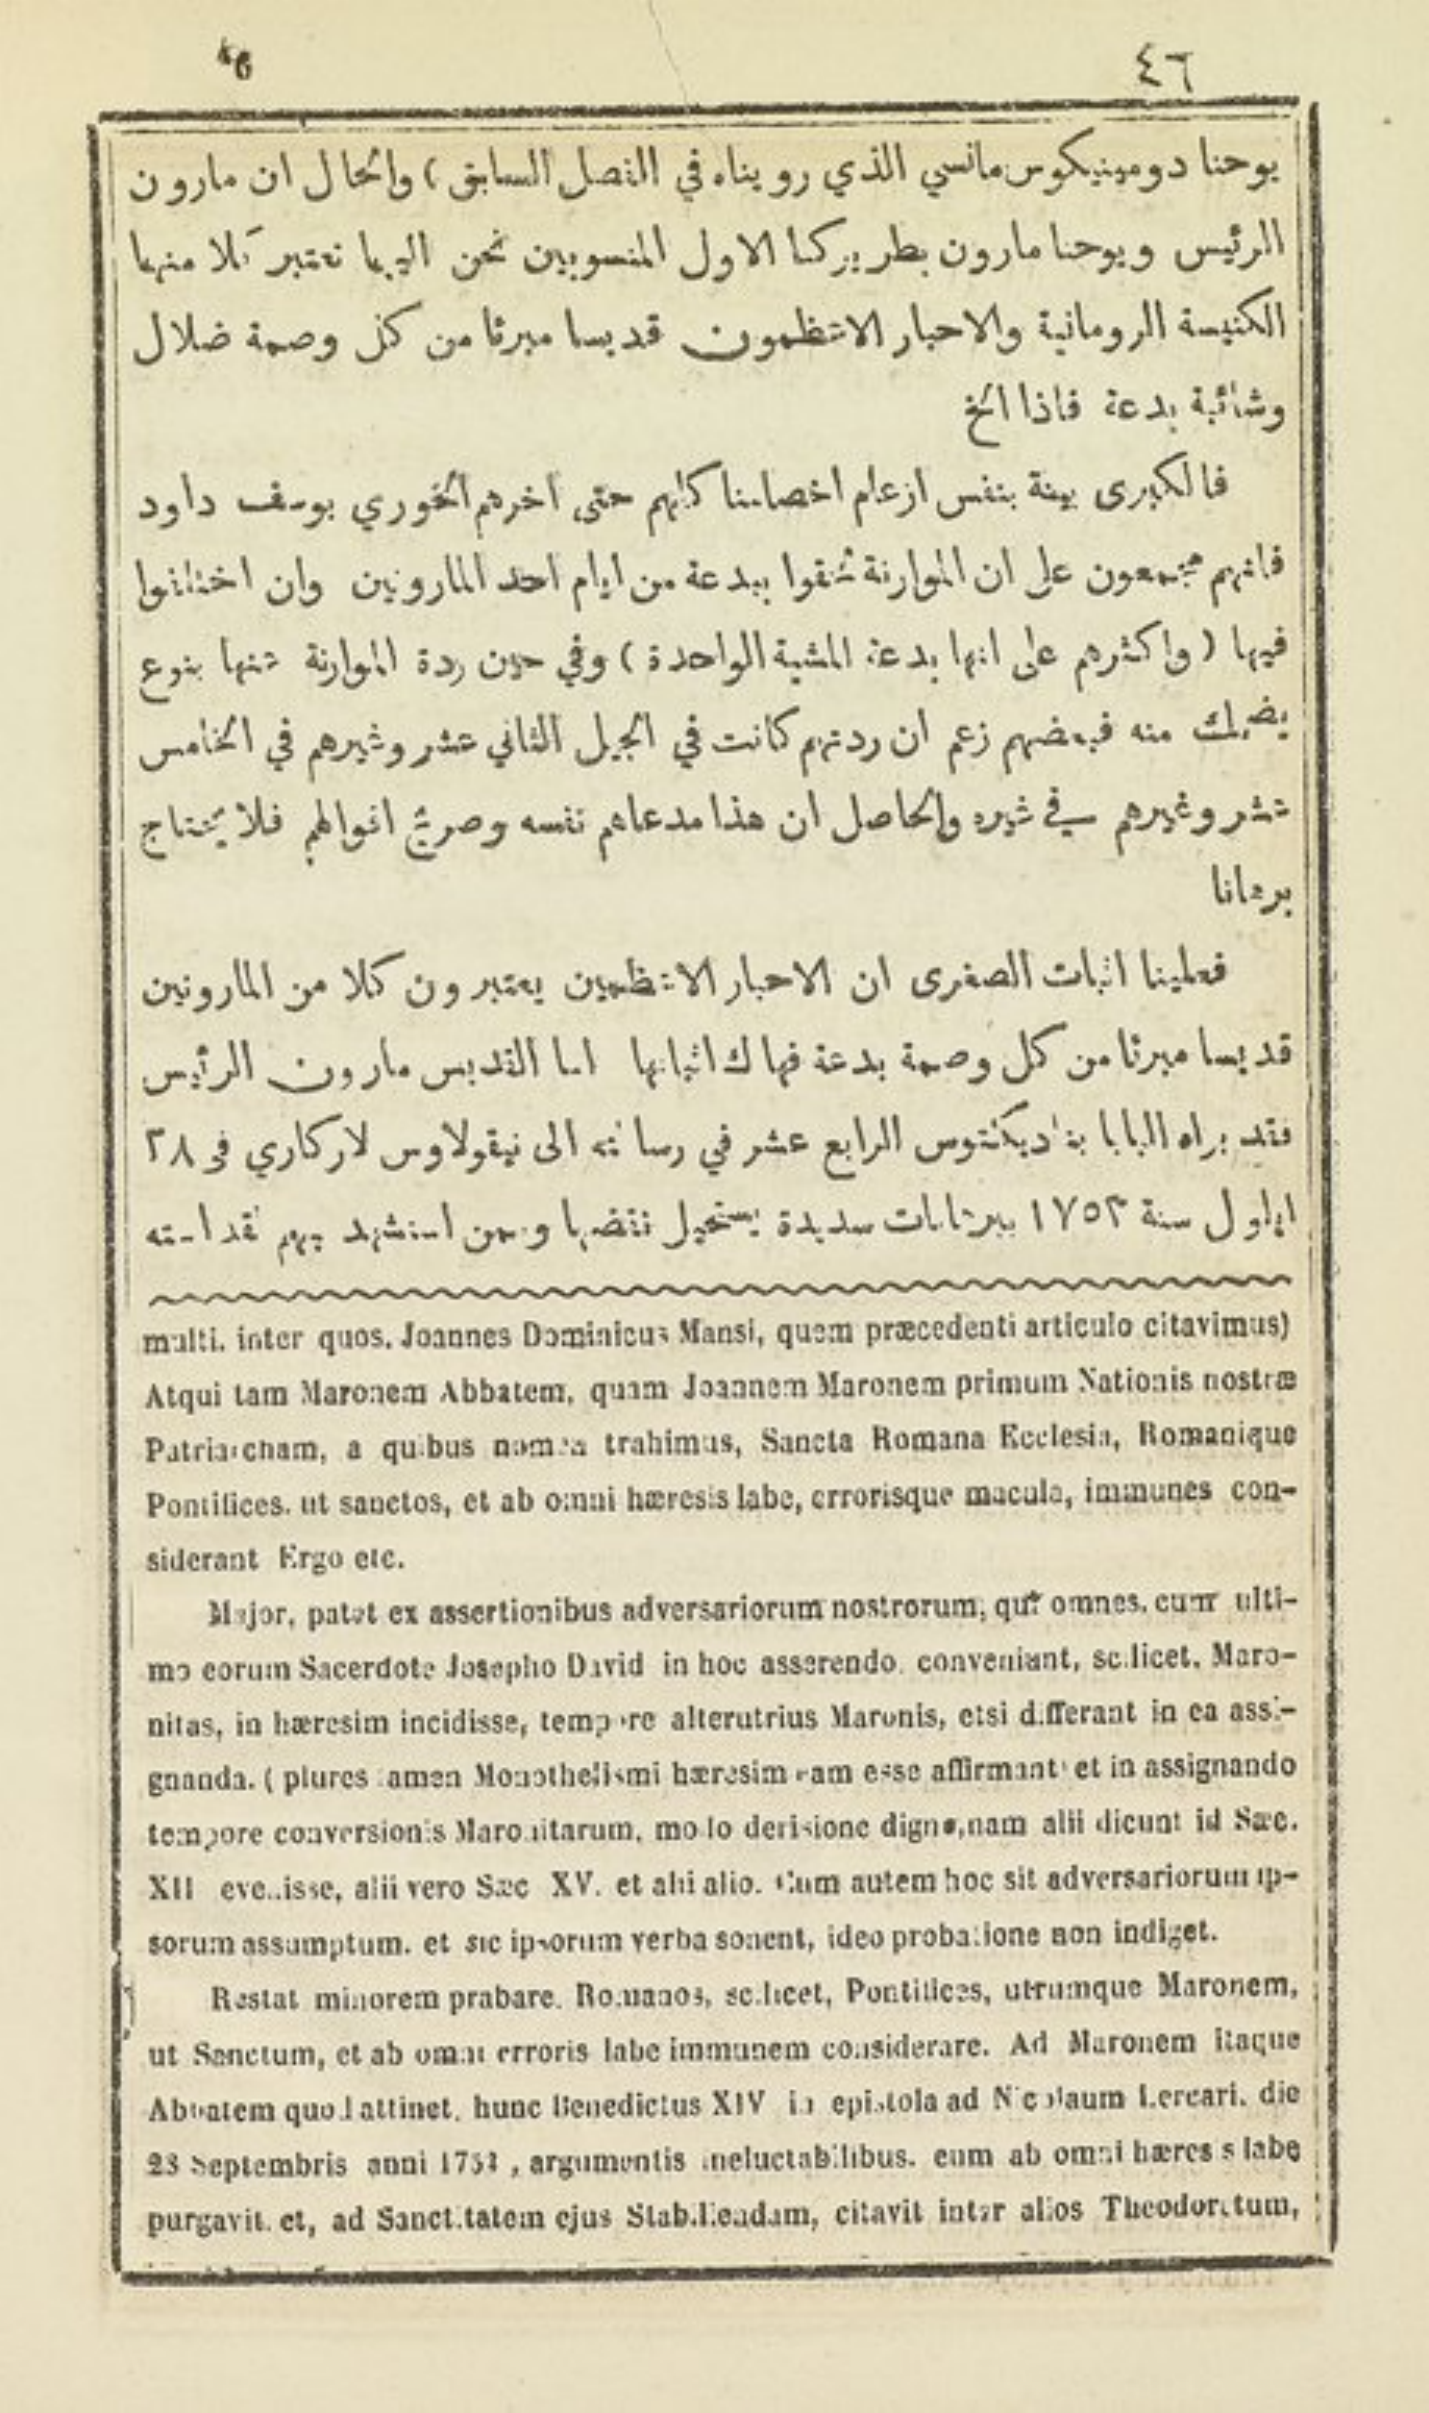 46 ٤٦
يوحنا دومينيكوس مانسي الذي رويناه في الفصل السابق) والحال ان مارون
الرئيس ويوحنا مارون بطريركنا الاول المنسوبين نحن اليهما تعتبر كلا منهما
الكنيسة الرومانية والاحبار الاعظمون قديسا مبرئا من كل وصمة ضلال
وشائبة بدعة فاذا الخ
فالكبرى بينة بنفس ازعام اخصامنا كلهم حتى اخرهم الخوري يوسف داود
فانهم مجمعون على ان الموارنة علقوا ببدعة من ايام احد المارونين وان اختلفوا
فيها (واكثرهم على انها بدعة المشية الواحدة) وفي حين ردة الموارنة عنها بنوع
يضحك منه فبعضهم زعم ان ردتهم كانت في الجيل الثاني عشر وغيرهم في الخامس
عشر وغيرهم في غيره والحاصل ان هذا مدعاهم نفسه وصريح اقوالهم فلا يحتاج
برهانا
فعلينا اثبات الصغرى ان الاحبار الاعظمين يعتبرون كلا من المارونين
قديسا مبرئا من كل وصمة بدعة فهاك اثباتها اما القديس مارون الرئيس
فقد براه البابا بناديكتوس الرابع عشر في رسالته الى نيقولاوس لاركاري في ٢٨
ايلول سنة ١٧٥٣ ببرهانات سديدة يستحيل نقضها وممن استشهد بهم لقداسته
multi. inter quos. Joannes Dominicus Mansi, quem præcedenti articulo citavimus)
Atqui tam Maronem Abbatem, quam Joannem Maronem primum Nationis nostræ
Patriarcham, a quibus nomen trahimus, Sancta Romana Ecclesia, Romanique
Pontifices. ut sanctos, et ab omni hæresis labe, errorisque macula, immunes con-
siderant Ergo etc.
Major, patet ex assertionibus adversariorum nostrorum, qui omnes. cum ulti-
mo eorum Sacerdote Josepho David in hoc asserendo. conveniant, scilicet. Maro-
nitas, in hæresim incidisse, tempore alterutrius Maronis, etsi differant in ea assi-
gnanda. ( plures tamen Monothelismi hæresim eam esse affirmant) et in assignando
tempore conversionis Maronitarum, modo derisione digno, nam alii dicunt id Sæc.
XII evenisse, alii vero Sæc XV. et alii alio. Cum autem hoc sit adversariorum ip-
sorum assumptum. et sic ipsorum verba sonent, ideo probatione non indiget.
Restat minorem prabare. Romanos, scilicet, Pontifices, utrumque Maronem,
ut Sanctum, et ab omni erroris labe immunem considerare. Ad Maronem itaque
Abbatem quod attinet, hunc Benedictus XIV in epistola ad Nicolaum Lercari. die
28 Septembris anni 1753 , argumentis ineluctabilibus. eum ab omni hæresis labe
purgavit. et, ad Sanctitatem ejus Stabiliendam, citavit inter alios Theodoretum,